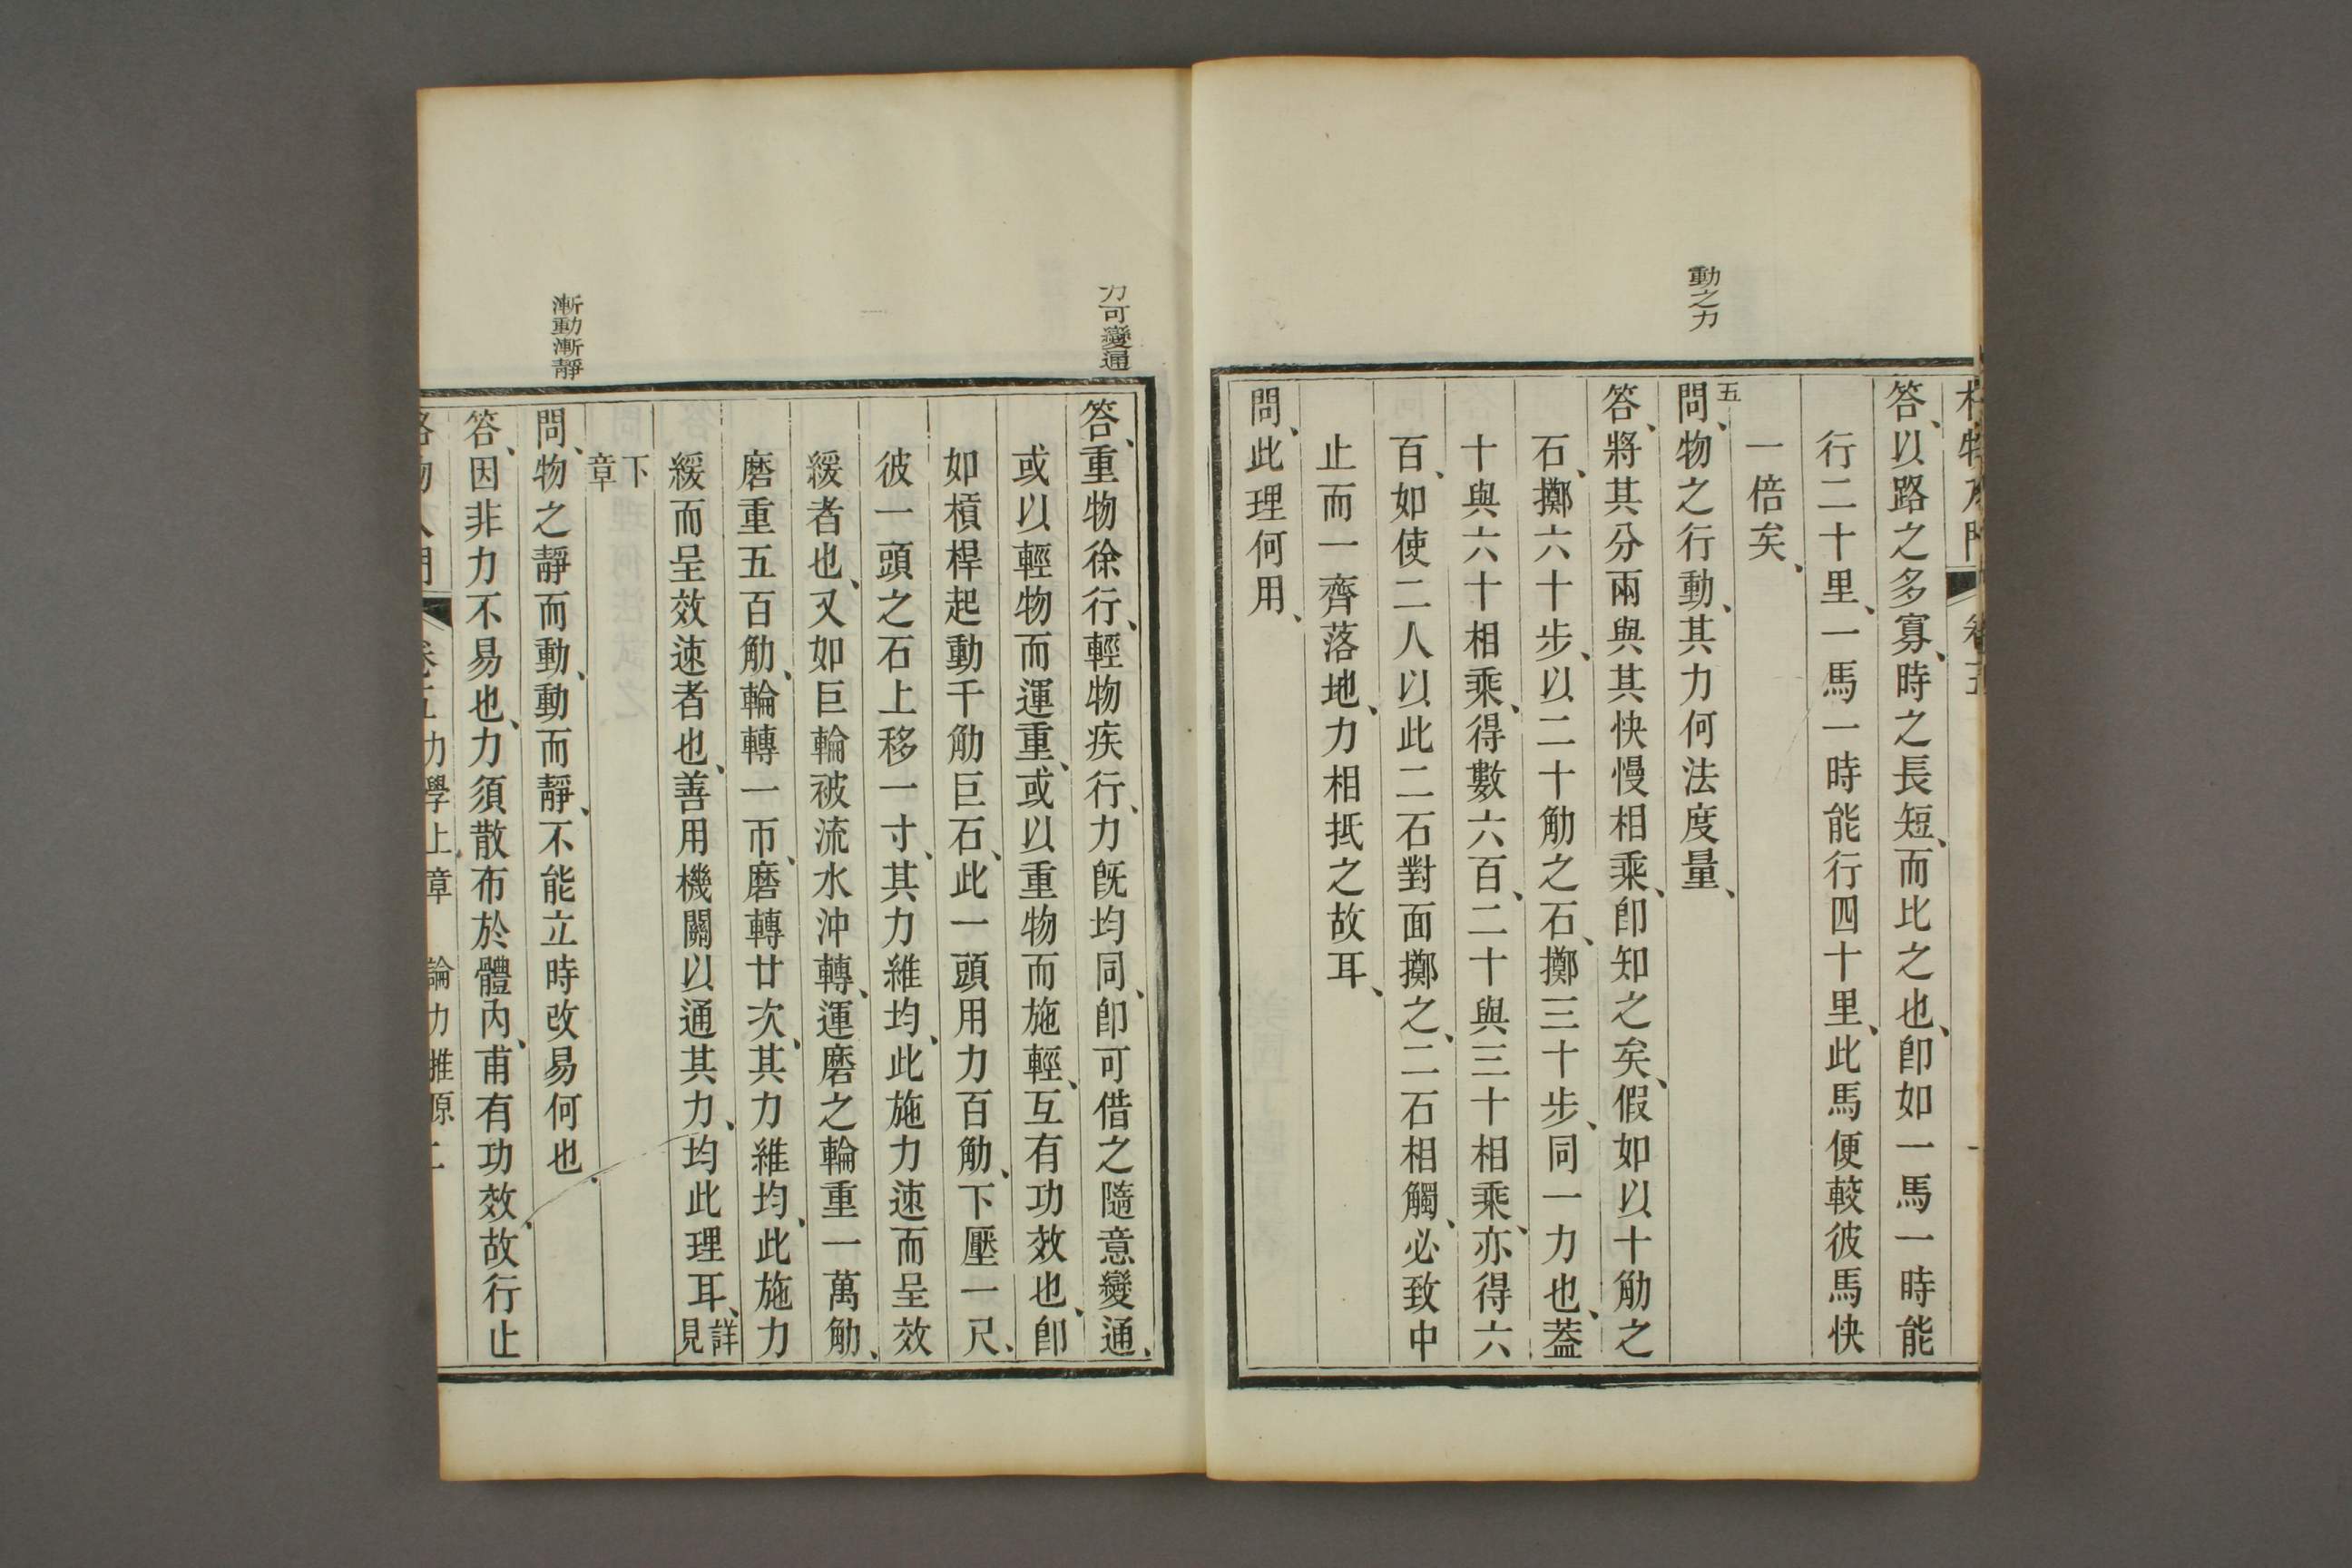 格物入門 卷五
答、以路之多寡、時之長短、而比之也、卽如一馬一時能
行二十里、一馬一時能行四十里、此馬便較彼馬快
一倍矣、
動之力
五
問、物之行動、其力何法度量、
答、將其分兩與其快慢相乘、卽知之矣、假如以十觔之
石、擲六十步、以二十觔之石、擲三十步、同一力也、蓋
十與六十相乘、得數六百、二十與三十相乘、亦得六
百、如使二人以此二石對面擲之、二石相觸、必致中
止而一齊落地、力相抵之故耳、
問、此理何用、
力可變通
答、重物徐行、輕物疾行、力旣均同、卽可借之隨意變通、
或以輕物而運重、或以重物而施輕、互有功效也、卽
如槓桿起動千觔巨石、此一頭用力百觔、下壓一尺、
彼一頭之石上移一寸、其力維均、此施力速而呈效
緩者也、又如巨輪被流水沖轉、運磨之輪重一萬觔、
磨重五百觔、輪轉一帀、磨轉廿次、其力維均、此施力
緩而呈效速者也、善用機關以通其力、均此理耳、詳見
下章
漸動漸靜
問、物之靜而動、動而靜、不能立時改易何也、
答、因非力不易也、力須散布於體內、甫有功效、故行止
格物入門 卷五 力學上章 論力推原 二